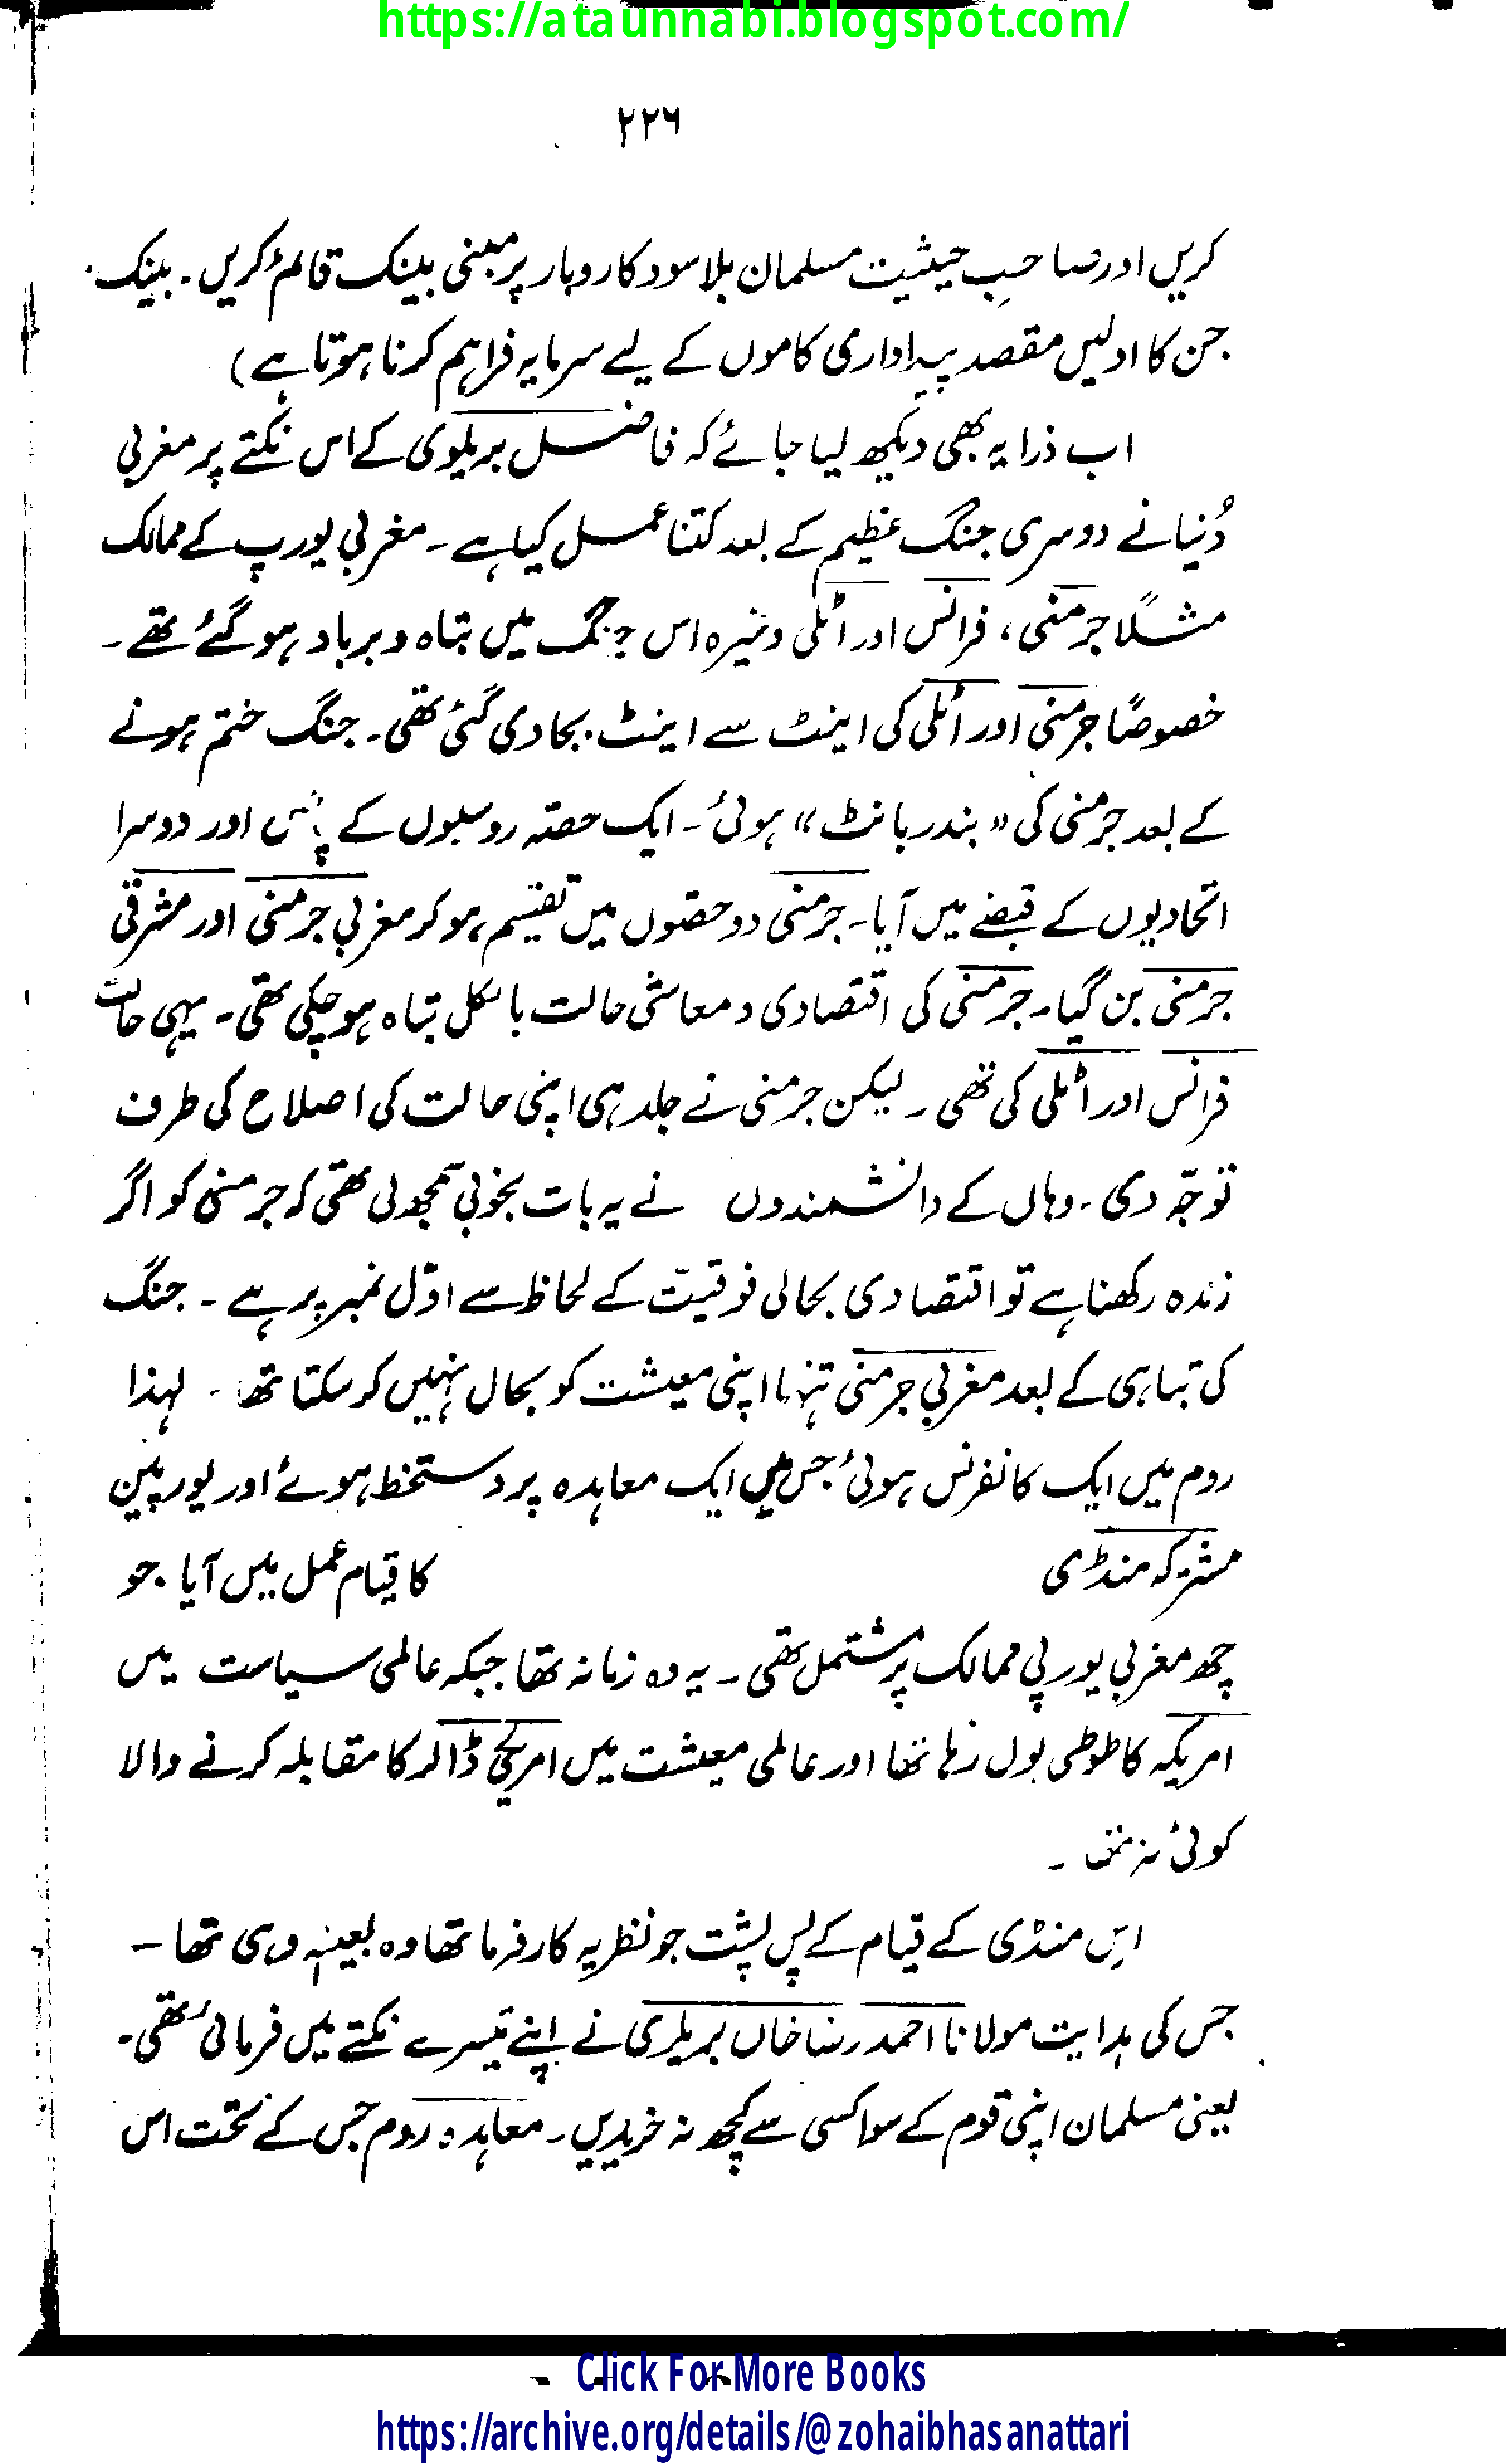 https://ataunnabi.blogspot.com/
۲۲۶
کریں اور صاحبِ حیثیت مسلمان بلا سود کاروبار پر مبنی بینک قائم کریں۔ بینک
جن کا اولیں مقصد پیداواری کاموں کے لیے سرمایہ فراہم کرنا ہوتا ہے)
اب ذرا یہ بھی دیکھ لیا جائے کہ فاضل بریلوی کے اس نکتے پر مغربی
دُنیا نے دوسری جنگ عظیم کے بعد کتنا عمل کیا ہے۔ مغربی یورپ کے ممالک
مثلاً جرمنی، فرانس اور اٹلی وغیرہ اس جنگ میں تباہ و برباد ہو گئے تھے۔
خصوصًا جرمنی اور اٹلی کی اینٹ سے اینٹ بجا دی گئی تھی۔ جنگ ختم ہونے
کے بعد جرمنی کی "بندر بانٹ" ہوئی۔ ایک حصّہ روسیوں کے پاس اور دوسرا
اتحادیوں کے قبضے میں آیا۔ جرمنی دو حصّوں میں تقسیم ہو کر مغربی جرمنی اور مشرقی
جرمنی بن گیا۔ جرمنی کی اقتصادی و معاشی حالت بالکل تباہ ہو چکی تھی۔ یہی حالت
فرانس اور اٹلی کی تھی۔ لیکن جرمنی نے جلد ہی اپنی حالت کی اصلاح کی طرف
توجّہ دی۔ وہاں کے دانشمندوں نے یہ بات بخوبی سمجھ لی تھی کہ جرمنی کو اگر
زندہ رکھنا ہے تو اقتصادی بحالی فوقیت کے لحاظ سے اوّل نمبر پر ہے۔ جنگ
کی تباہی کے بعد مغربی جرمنی تنہا اپنی معیشت کو بحال نہیں کر سکتا تھا۔ لہذا
روم میں ایک کانفرنس ہوئی جس میں ایک معاہدہ پر دستخط ہوئے اور یورپین
مشترکہ منڈی کا قیام عمل میں آیا جو
چھ مغربی یورپی ممالک پر مشتمل تھی۔ یہ وہ زمانہ تھا جبکہ عالمی سیاست میں
امریکہ کا طوطی بول رہا تھا اور عالمی معیشت میں امریکی ڈالر کا مقابلہ کرنے والا
کوئی نہ تھا۔
اِس منڈی کے قیام کے پس پشت جو نظریہ کارفرما تھا وہ بعینہٖ وہی تھا۔
جس کی ہدایت مولانا احمد رضا خاں بریلوی نے اپنے تیسرے نکتے میں فرمائی تھی۔
یعنی مسلمان اپنی قوم کے سوا کسی سے کچھ نہ خریدیں۔ معاہدہ روم جس کے تحت اس
Click For More Books
https://archive.org/details/@zohaibhasanattari